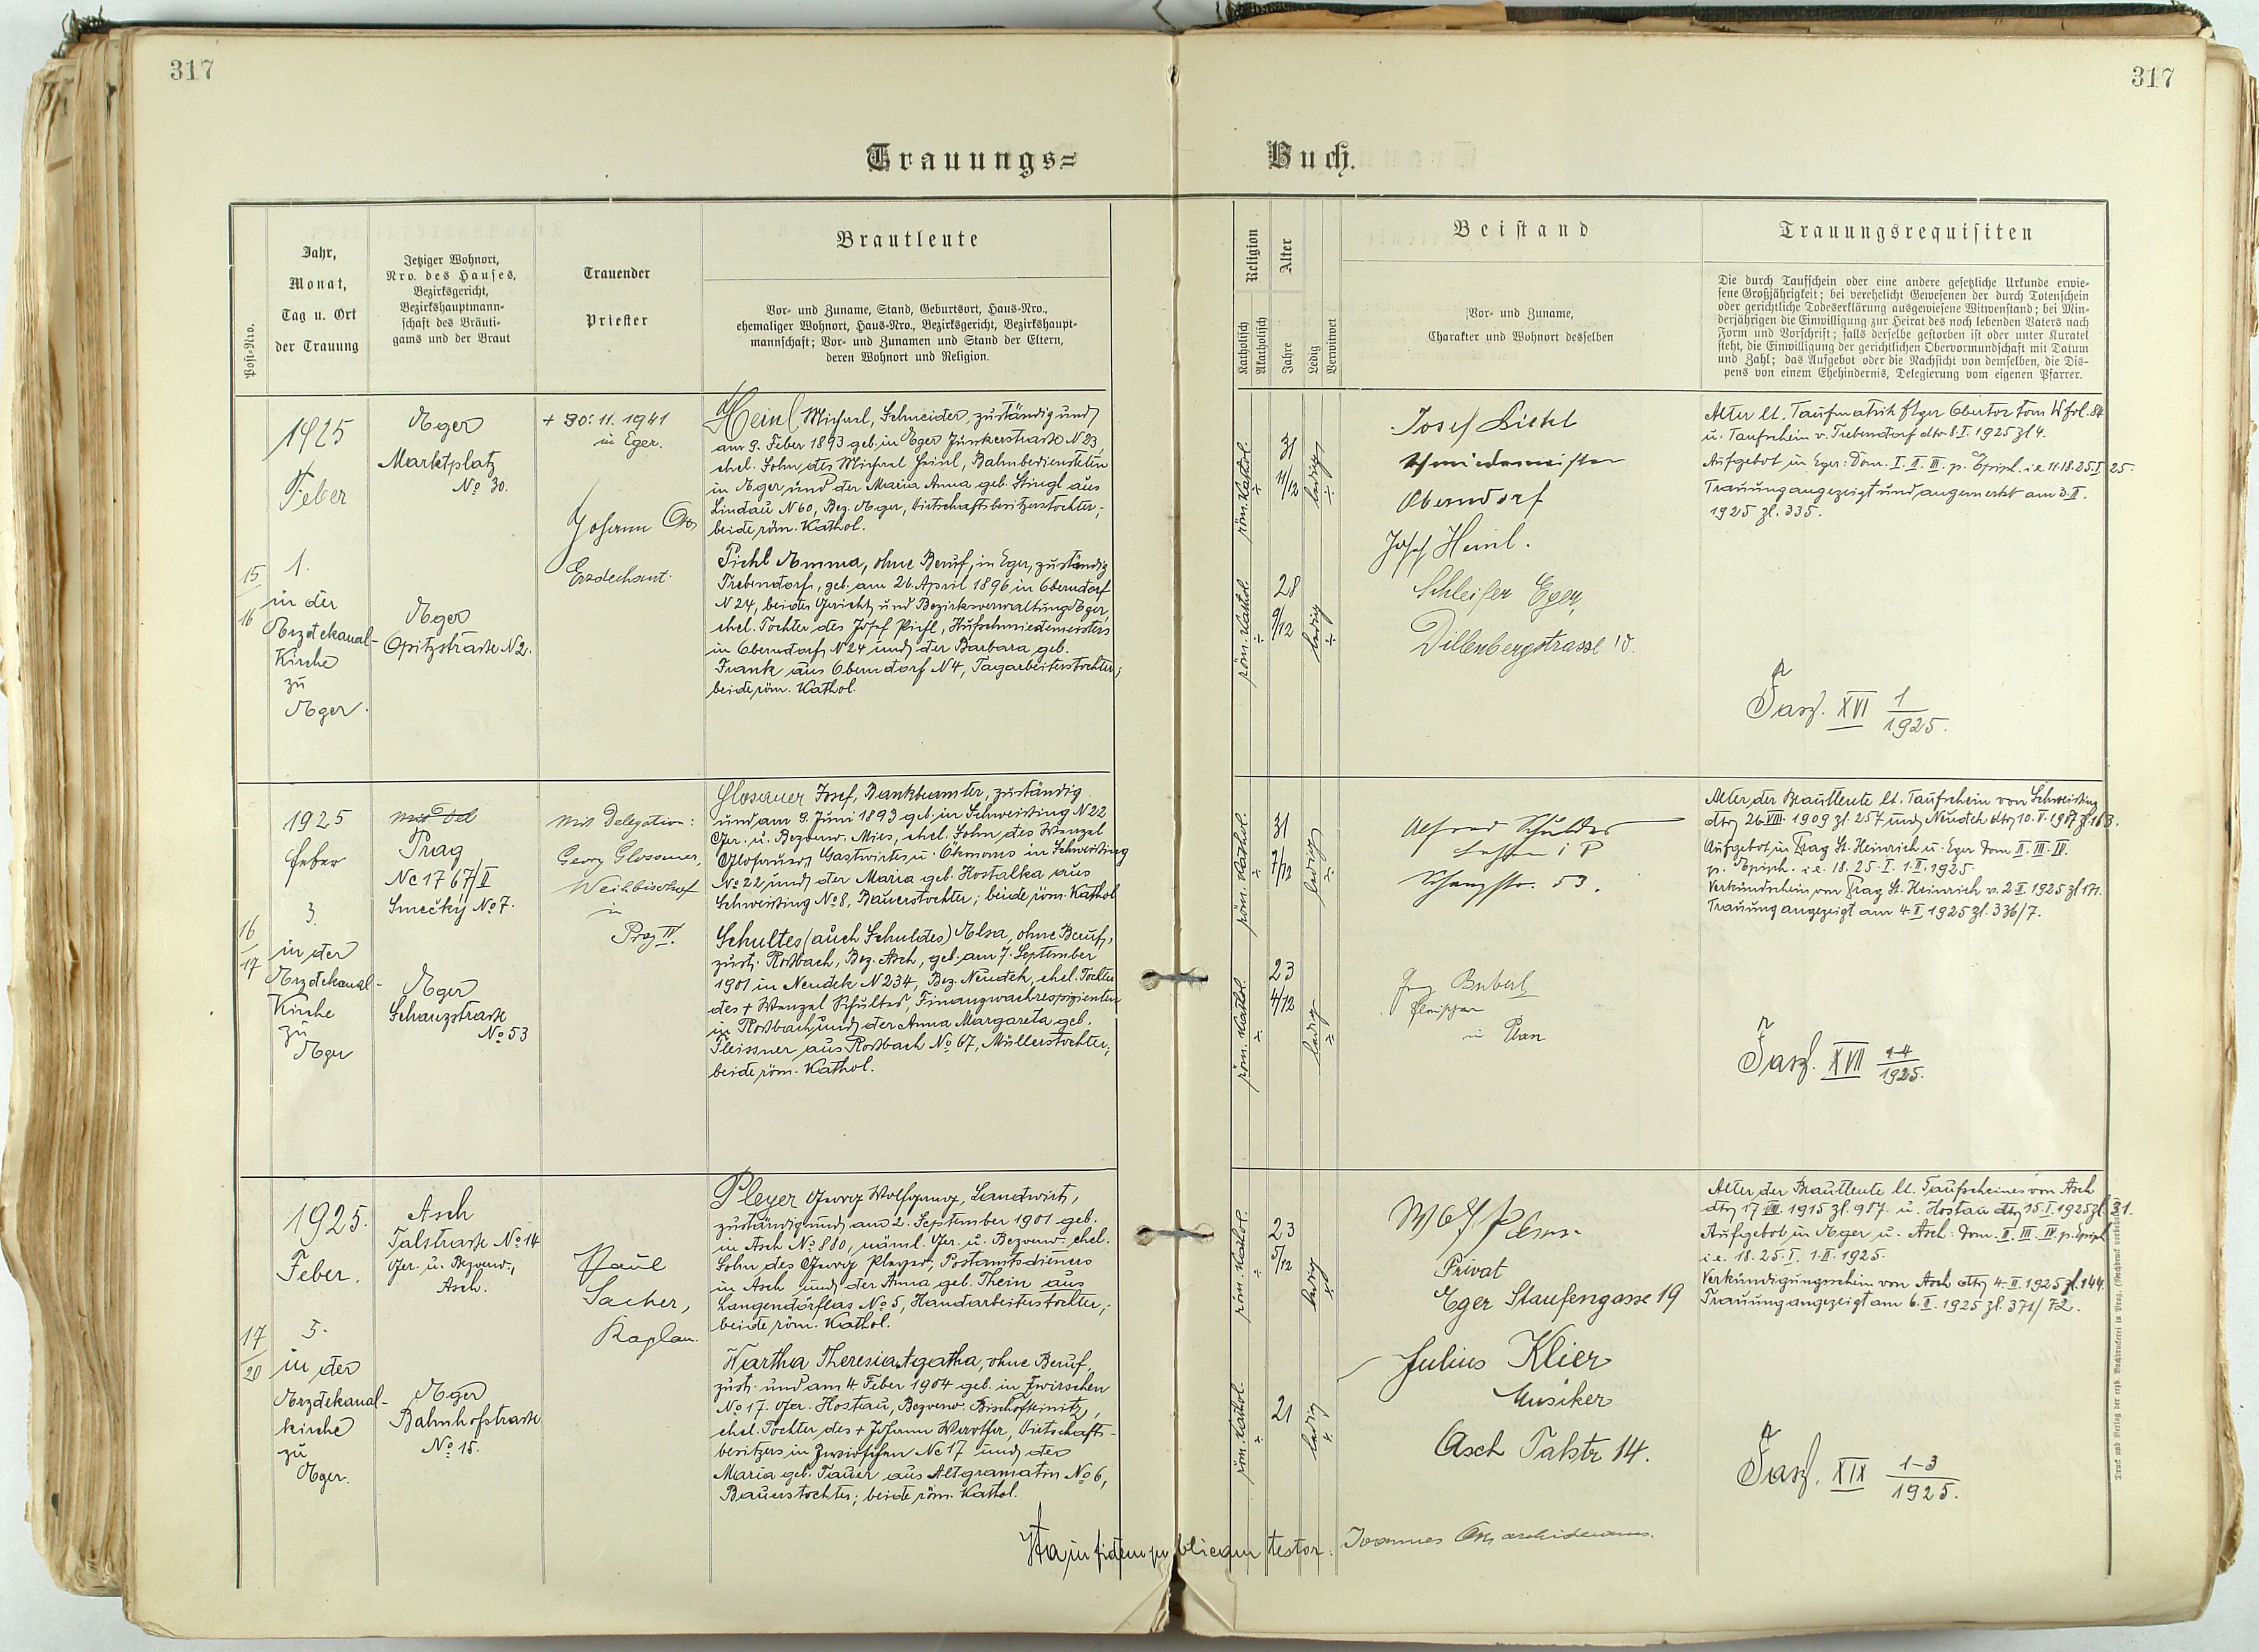 317
317
Trauungs=
Buch.
Post=Nro.
Jahr,
Monat,
Tag u. Ort
der Trauung
Jetziger Wohnort,
Nro. des Hauses,
Bezirksgericht,
Bezirkshauptmann=
schaft des Bräuti=
gams und der Braut
Trauender
Priester
Brautleute
Vor= und Zuname, Stand, Geburtsort, Haus=Nro.,
ehemaliger Wohnort, Haus=Nro., Bezirksgericht, Bezirkshaupt=
mannschaft; Vor= und Zunamen und Stand der Eltern,
deren Wohnort und Religion.
Religion
Katholisch
Akatholisch
Alter
Jahre
Ledig
Verwitwet
Beistand
Vor= und Zuname,
Charakter und Wohnort desselben
Trauungsrequisiten
Die durch Taufschein oder eine andere gesetzliche Urkunde erwie=
sene Großjährigkeit; bei verehelicht Gewesenen der durch Totenschein
oder gerichtliche Todeserklärung ausgewiesene Witwenstand; bei Min=
derjährigen die Einwilligung zur Heirat des noch lebenden Vaters nach
Form und Vorschrift; falls derselbe gestorben ist oder unter Kuratel
steht, die Einwilligung der gerichtlichen Obervormundschaft mit Datum
und Zahl; das Aufgebot oder die Nachsicht von demselben, die Dis=
pens von einem Ehehindernis, Delegierung vom eigenen Pfarrer.
15
16
1925
Feber
1.
in der
Erzdekanal-
Kirche
zu
Eger.
Eger
Marktplatz
No 30.
Eger
Opitzstraße N2.
+ 30. 11. 1941
in Eger.
Johann
Erzdechant.
Heinl Michael, Schneider, zuständig und
am 9. Feber 1893 geb. in Eger Junkerstraße N 23,
ehel. Sohn des Michael Heinl, Bahnbediensteten
in Eger und der Maria Anna geb. Stingl aus
Lindau N 60, Bez. Eger, Wirtschaftsbesitzerstochter;
beide röm. Kathol.
Pichl Emma, ohne Beruf, in Eger, zuständig
Trebendorf, geb. am 26. April 1896 in Oberndorf
N 24, beides Gericht und Bezirksverwaltung Eger,
ehel. Tochter des Josef Pichl, Hufschmiedemeisters
in Oberndorf N 24 und der Barbara geb.
Frank aus Oberndorf N 4, Tagarbeiterstochter;
beide röm. Kathol.
röm. Kathol.
31
11/12
ledig
röm. Kathol.
28
9/12
ledig
Josef
Schmiedemeister
Oberndorf
Josef Heinl.
Schleifer Eger
Dillenbergstrasse
Alter lt. Taufmatrik Eger Obertor Tom W fol. 84
u. Taufschein v. Trebendorf dto 8. I. 1925 zl 4.
Aufgebot in Eger: Dom. I. II. III. p. Epiph. i.e. 11. 18. 25. I. 25.
Trauung angezeigt und angemerkt am 3. II.
1925 zl. 335.
Fasz. XVI 1/1925.
16
17
1925
Feber
3.
in der
Erzdekanal-
Kirche
zu
Eger
Prag
Nc 1767/II
Smečky No 7.
Eger
Schanzstraße
No 53
Mit Delegation:
Georg Glosauer,
Weihbischof
in
Prag IV.
Glosauer Josef, Bankbeamter, zuständig
und am 9. Juni 1893 geb. in Schweißing N 22
Ger. u. Bezverw. Mies, ehel. Sohn des Wenzel
Glosauer, Gastwirtes u. Ökonoms in Schweißing
No 22 und der Maria geb. Hostalka aus
Schweißing No 8, Bauerstochter; beide röm. Kathol
Schultes (auch Schuldes) Elsa, ohne Beruf,
zust. Roßbach, Bez. Asch, geb. am 7. September
1901 in Neudek N 234, Bez. Neudek, ehel. Tochter
des + Wenzel Schultes, Finanzwachrespizienten
in Roßbach und der Anna Margareta geb.
Fleissner aus Roßbach No 67, Müllerstochter;
beide röm. Kathol.
röm. Kathol.
31
7/12
ledig
röm. Kathol.
23
4/12
ledig
Alfred Schuldes
Schanzstr. 53.
Fleischer
in Plan
Alter der Brautleute lt. Taufschein von Schweißing
dto 26. VIII. 1909 zl. 257 und Neudek dto 10. V.
Aufgebot in Prag St. Heinrich u. Eger Dom II. III. IV.
p. Epiph. i.e. 18. 25. I. 1. II. 1925.
Verkündschein von Prag St. Heinrich v. 2. II. 1925 zl 171.
Trauung angezeigt am 4. II 1925 zl. 336/7.
Fasz. XVII 1-4/1925.
17
20
1925.
Feber.
5.
in der
Erzdekanal-
kirche
zu
Eger.
Asch
Talstraße No 14
Ger. u. Bezverw.,
Asch.
Eger
Bahnhofstraße
No 15.
Paul
Sacher,
Kaplan.
Pleyer Georg Wolfgang, Landwirt,
zuständig und am 2. September 1901 geb.
in Asch No 880, näml. Ger. u. Bezverw. ehel.
Sohn des Georg Pleyer, Postamtsdieners
in Asch und der Anna geb. Thein aus
Langendörflas No 5, Handarbeiterstochter;
beide röm. Kathol.
Wartha Theresia Agatha, ohne Beruf,
zust. und am 4. Feber 1904 geb. in Zwirschen
No 17. Ger. Hostau, Bezverw. Bischofteinitz,
ehel. Tochter des + Johann Wartha, Wirtschafts-
besitzers in Zwirschen Nc 17 und der
Maria geb. Tauer aus Altgramatin No 6,
Bauerstochter; beide röm. Kathol.
röm. Kathol.
23
5/12
ledig
röm. Kathol.
21
ledig
Privat
Eger Staufengasse 19
Julius Klier
Musiker
Asch Talstr 14.
Alter der Brautleute lt. Taufscheines von Asch
dto 17. VIII. 1915 zl. 987. u. Hostau dto 15. I. 1925 zl. 31.
Aufgebot in Eger u. Asch: Dom. II. III. IV. p. Epiph
i.e. 18. 25. I. 1. II. 1925.
Verkündigungsschein von Asch dto 4. II. 1925 zl. 144.
Trauung angezeigt am 6. II. 1925 zl. 371/72.
Fasz. XIX 1-3/1925.
Ita in fidem publicam testor. Joannes archidecanus.
Druck und Verlag der erzb. Buchdruckerei in Prag. (Nachdruck verboten.)